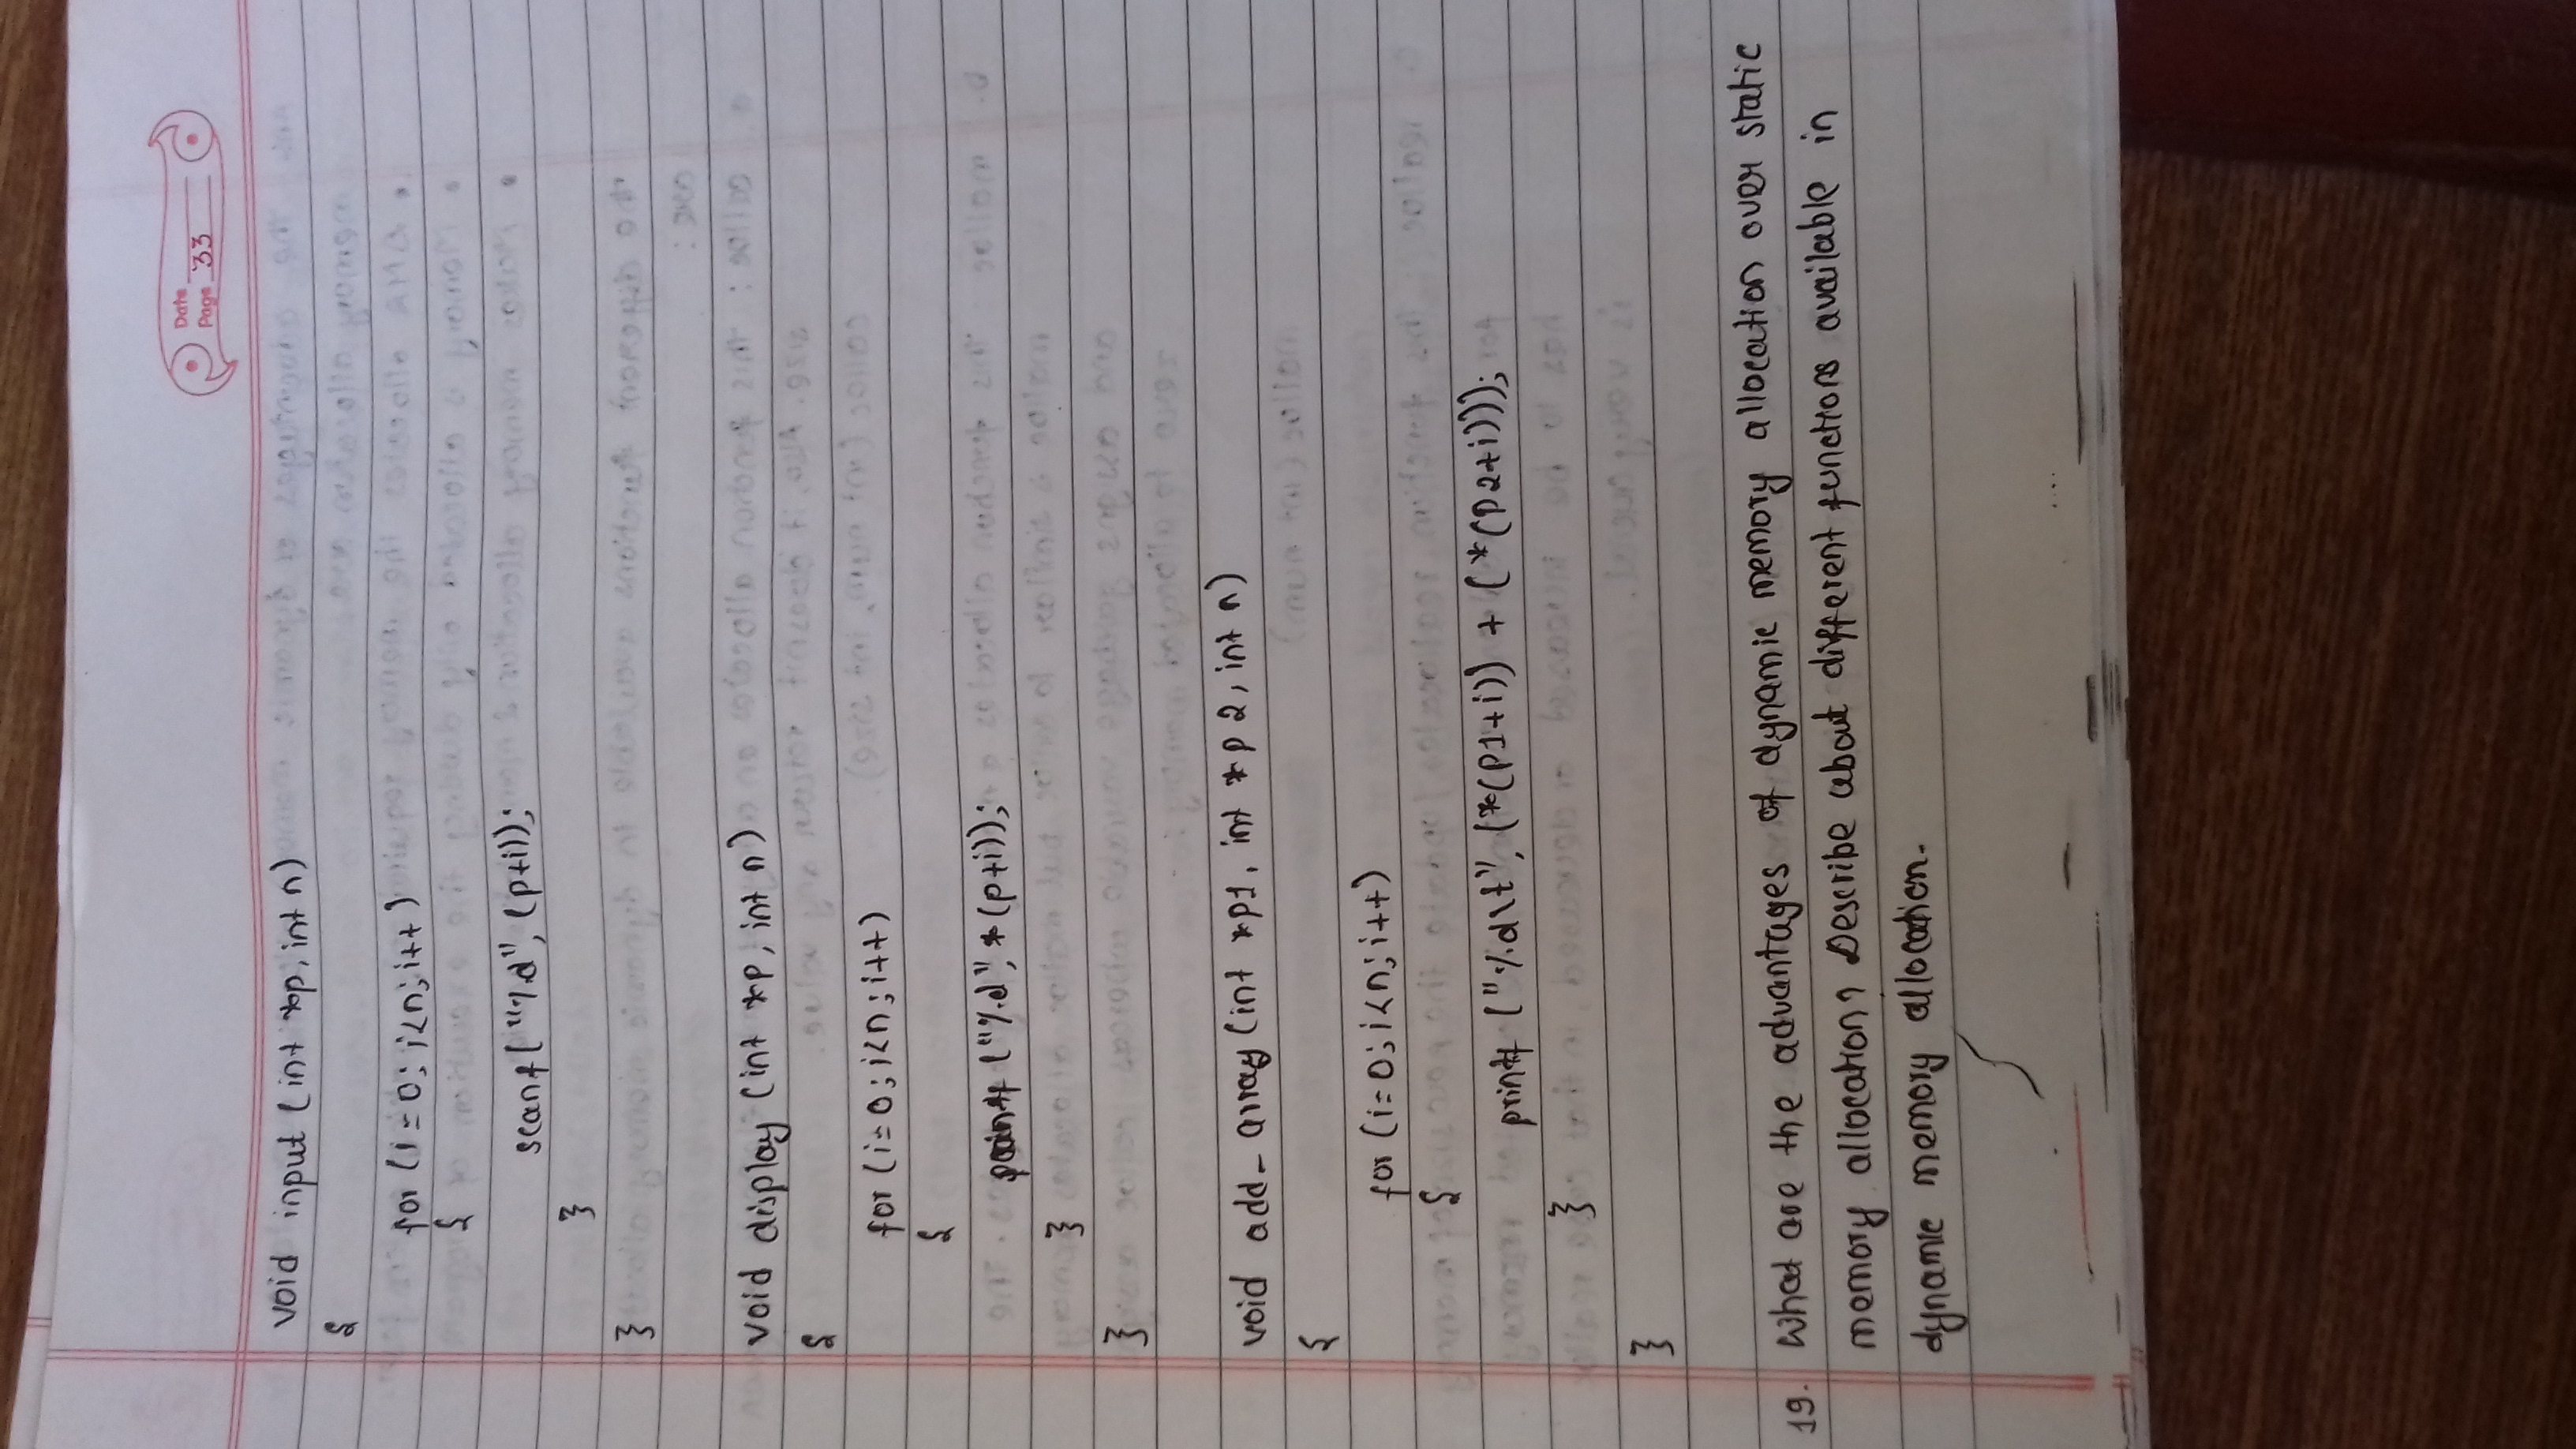 Date
Page 33
void input (int *p, int n)
{
for (i=0; i<n; i++)
{
scanf("%d", (p+i));
}
}
void display (int *p, int n)
{
for (i=0; i<n; i++)
{
printf ("%d", *(p+i));
}
}
void add_array (int *p1, int *p2, int n)
{
for (i=0; i<n; i++)
{
printf ("%d\t", (*(p1+i)) + (*(p2+i)));
}
}
19. What are the advantages of dynamic memory allocation over static
memory allocation? Describe about different functions available in
dynamic memory allocation.